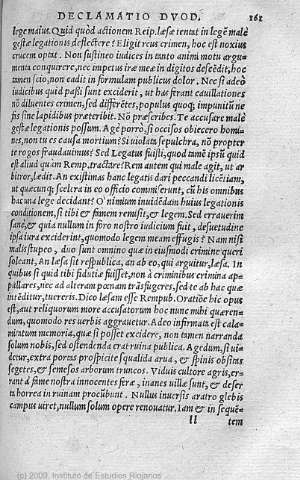 DECLAMATIO DVOD. 161
lege malus. Quid quòd actionem Reip. læsæ tenta in lege malè
gestæ legationis deflectere? Eligit reus crimen, hoc est noxius
crucem optat. Non sustineo iudices in tanto animi motu argu-
menta conquirere, nec impetus iræ meæ in digitos descēdit, hoc
tamen scio, non cadit in formulam publicus dolor. Nec si adeo
iudicibus quid passi sunt exciderit, ut has ferant cauillationes
nō diluentes crimen, sed differētes, populus quoq; impunitū ne
fis sine lapidibus præteribit. Nō præscribes. Te accusare malè
gestæ legationis possum. Age porrò, si occisos obiecero homi-
nes, non tu es causa mortium? Si uiolata sepulchra, nō propter
te rogos fraudauimus? Sed Legatus fuisti, quod tamē ipsū quid
est aliud quàm Remp. tractare? Rem autem qui malè agit, ut ar
bitror, lædit. An existimas hanc legatis dari peccandi licētiam,
ut quæcunq; scelera in eo officio commiserunt, cū his omnibus
hac una lege decidant? O nimium inuidendam huius legationis
conditionem, si tibi & famem remisit, & legem. Sed errauerim
sanè, & quia nullum in foro nostro iudicium fuit, desuetudine
ipsa iura exciderint, quomodo legem meam effugis? Nam nisi
malè stupeo, duo sunt omnino quæ in eiusmodi crimine quæri
soleant, An læsa sit respublica, an ab eo, qui arguitur, læsa. In
quibus si quid tibi fiduciæ fuisset, non à criminibus crimina ap-
pellares, nec ad alteram pœnam trāsfugeres, sed te ab hac quæ
inteditur, tuereris. Dico læsam esse Rempub. Oratiōe hic opus
est, aut reliquorum more accusatorum hoc nunc mihi quæren-
dum, quomodo res uerbis aggrauetur. Adeo infirmata est cala-
mitatum memoria, quæ si posset excidere, non tamen narranda
solum nobis, sed ostendenda erat ruina publica. Agedum, si ui-
detur, extra portas prospicite squalida arua, & spinis obsitas
segetes, & semesos arborum truncos. Viduis cultore agris, er-
rant à fame nostra innocentes feræ, inanes uillæ sunt, & deser
ta horrea in ruinam procūbunt. Nullus inuersis aratro glebis
campus uiret, nullum solum opere renouatur. Iam & in sequē-
ll tem
(c) 2009. Instituto de Estudios Riojanos